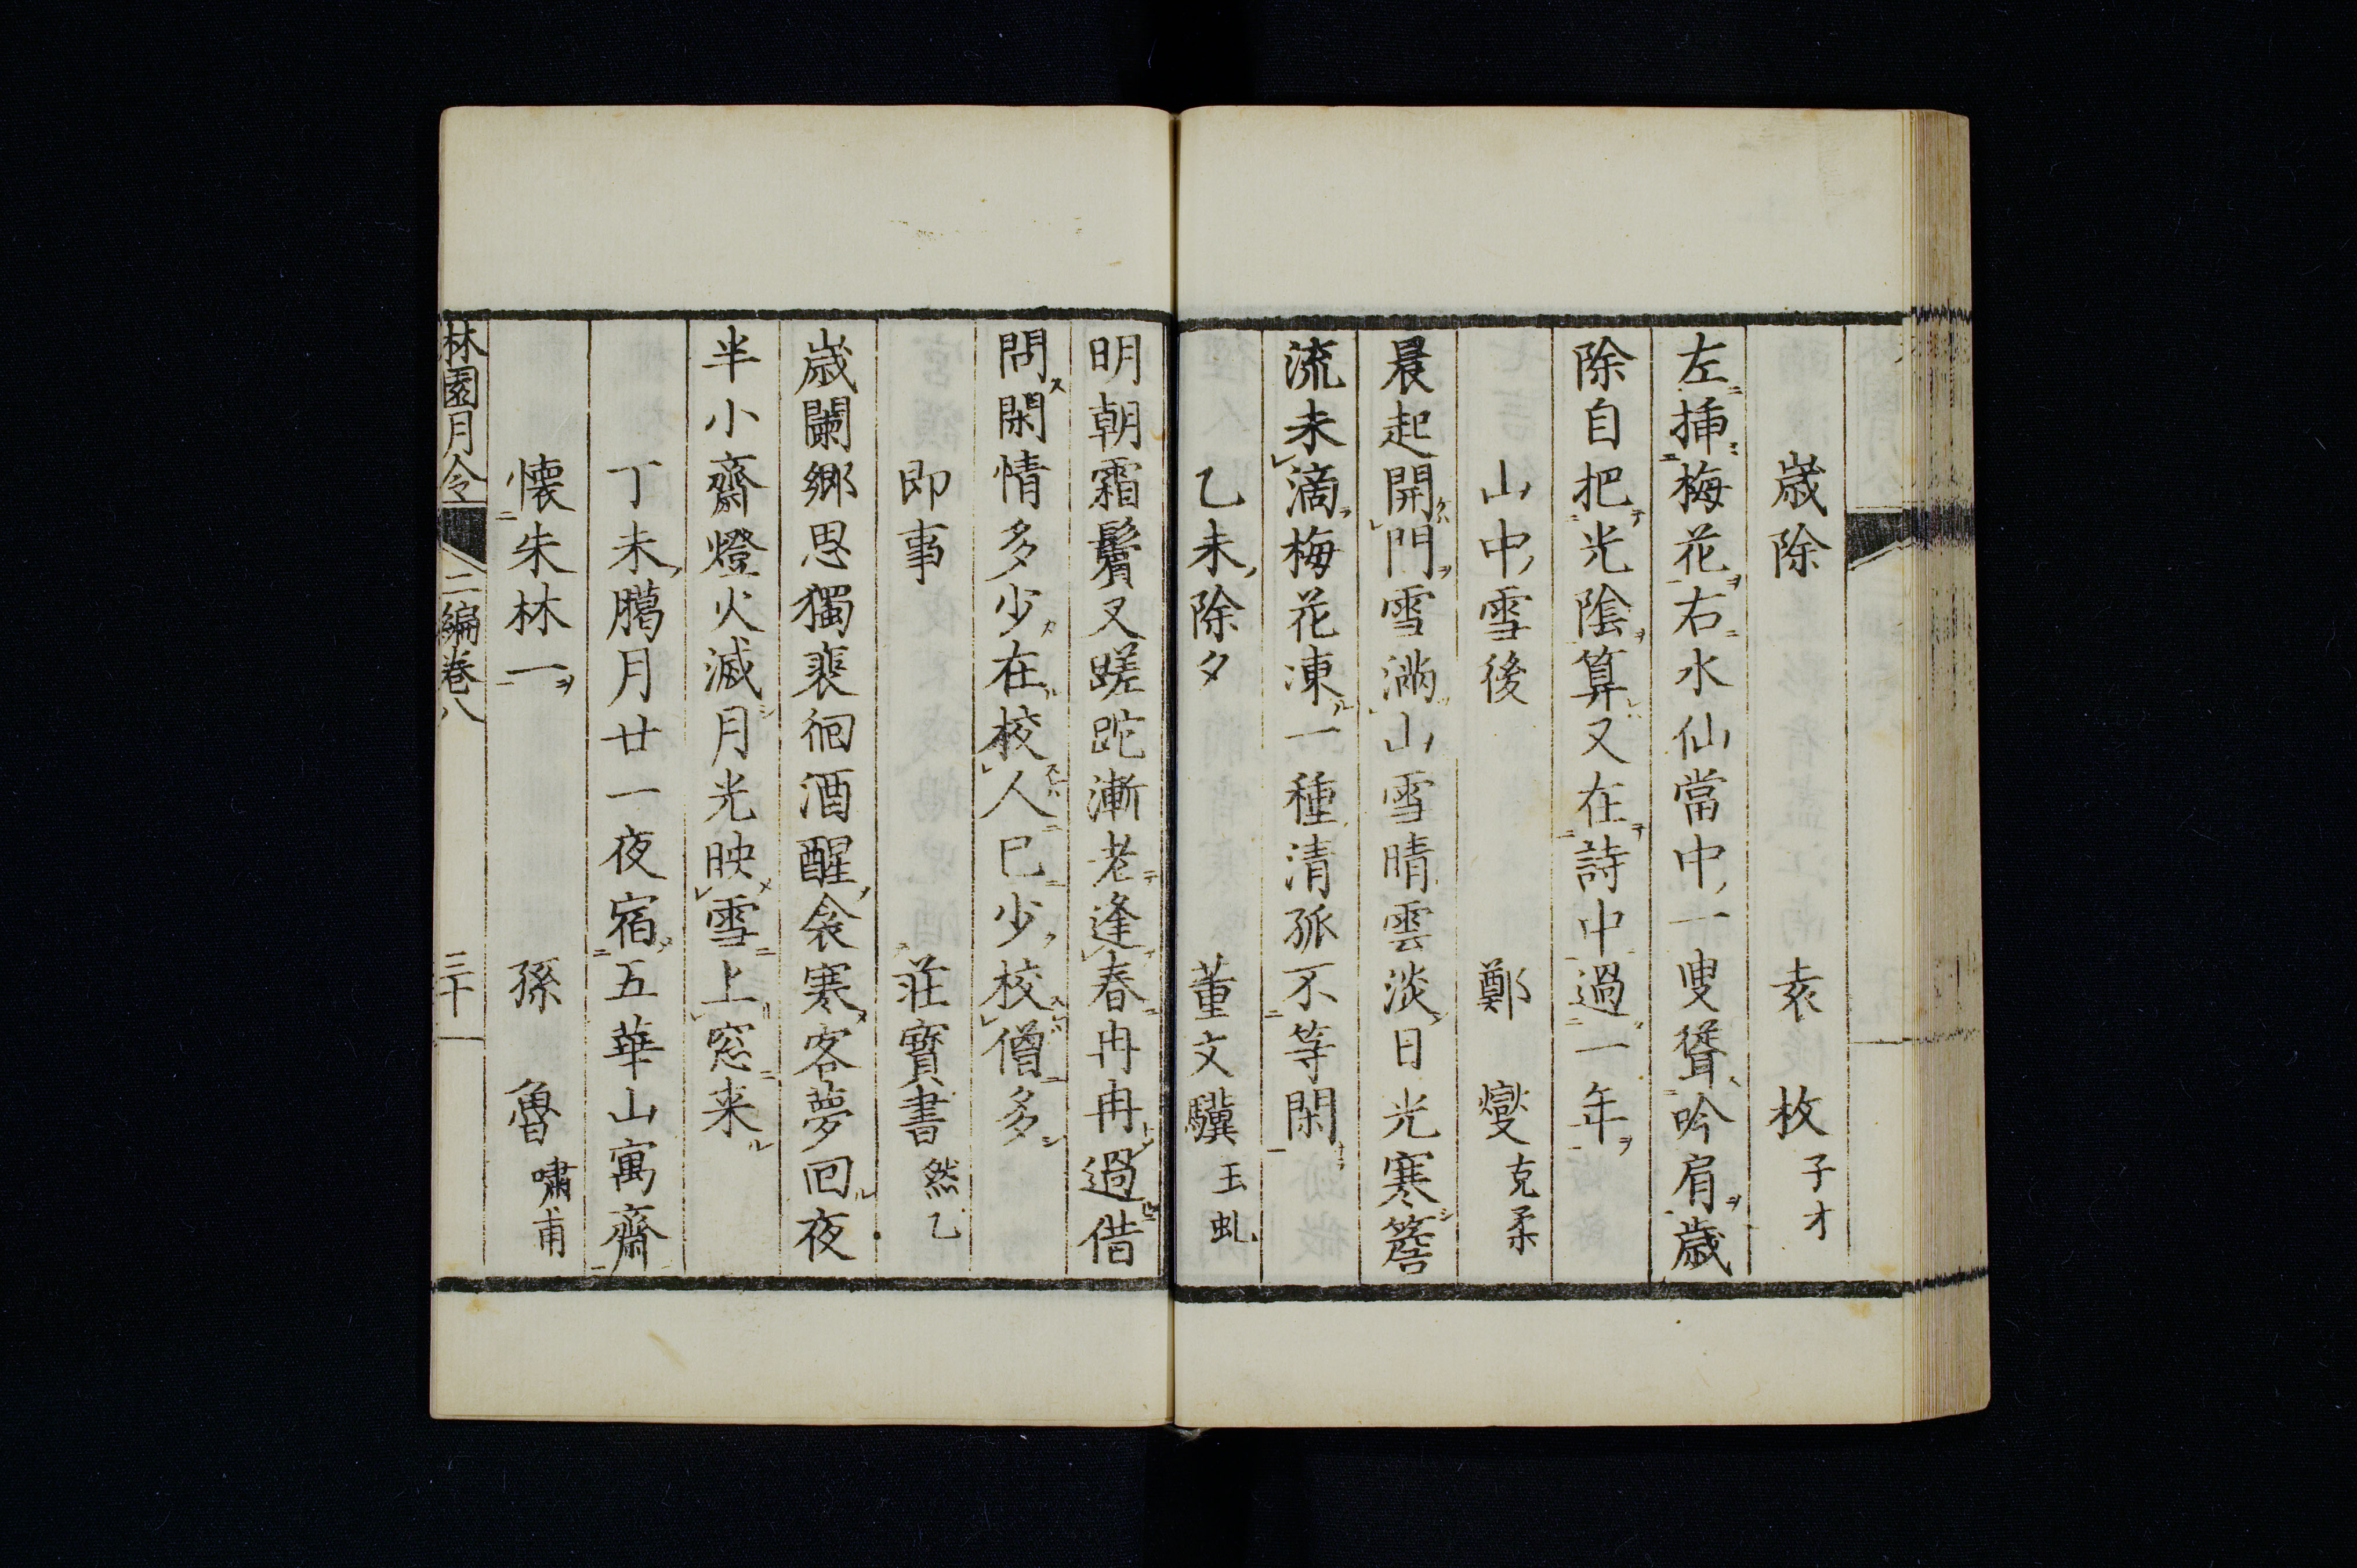 歳除 袁枚子才
左揷梅花右水仙當中一叟聳吟肩歳
除自把光陰算又在詩中過一年
山中雪後 鄭燮克柔
晨起開門雪滿山雪晴雲淡日光寒簷
流未滴梅花凍一種清孤不等閑
乙未除夕 董文驥玉虬
明朝霜鬢又蹉跎漸老逢春冉冉過借
問閑情多少在校人已少校僧多
即事 莊寶書然乙
歳闌鄉思獨裴徊酒醒衾寒客夢回夜
半小齋燈火滅月光映雪上窓来
丁未臈月廿一夜宿五華山寓齋
懐朱林一 孫魯嘯甫
林園月令 二編巻八 三十一